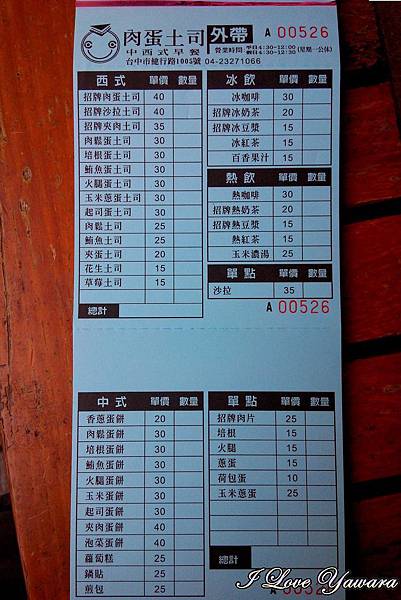 肉蛋土司 外帶 A 00526
中西式早餐 營業時間: 平日4:30-12:00 假日4:30-12:30 (星期一公休)
台中市健行路1005號 04-23271066
西式 單價 數量
招牌肉蛋土司 40
招牌沙拉土司 40
招牌夾肉土司 35
肉鬆蛋土司 30
培根蛋土司 30
鮪魚蛋土司 30
火腿蛋土司 30
玉米蔥蛋土司 30
起司蛋土司 30
肉鬆土司 25
鮪魚土司 25
夾蛋土司 20
花生土司 15
草莓土司 15
總計
冰飲 單價 數量
冰咖啡 30
招牌冰奶茶 20
招牌冰豆漿 15
冰紅茶 15
百香果汁 15
熱飲 單價 數量
熱咖啡 30
招牌熱奶茶 20
招牌熱豆漿 15
熱紅茶 15
玉米濃湯 25
單點 單價 數量
沙拉 35
A 00526
中式 單價 數量
香蔥蛋餅 20
肉鬆蛋餅 30
培根蛋餅 30
鮪魚蛋餅 30
火腿蛋餅 30
玉米蛋餅 30
起司蛋餅 30
夾肉蛋餅 40
泡菜蛋餅 40
蘿蔔糕 25
鍋貼 25
煎包 25
單點 單價 數量
招牌肉片 25
培根 15
火腿 15
蔥蛋 15
荷包蛋 10
玉米蔥蛋 25
總計
A 0052
I Love Yawara